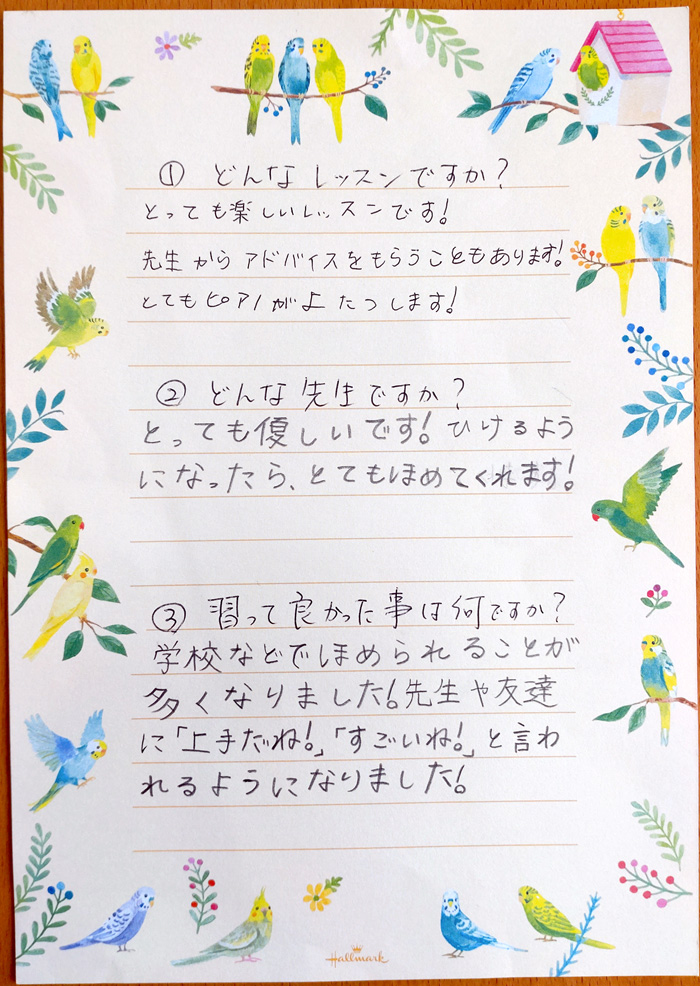 ① どんなレッスンですか?
とっても楽しいレッスンです!
先生からアドバイスをもらうこともあります!
とてもピアノが上たつします!
② どんな先生ですか?
とっても優しいです!ひけるよう
になったら、とてもほめてくれます!
③ 習って良かった事は何ですか?
学校などでほめられることが
多くなりました!先生や友達
に「上手だね!」「すごいね!」と言わ
れるようになりました!
Hallmark